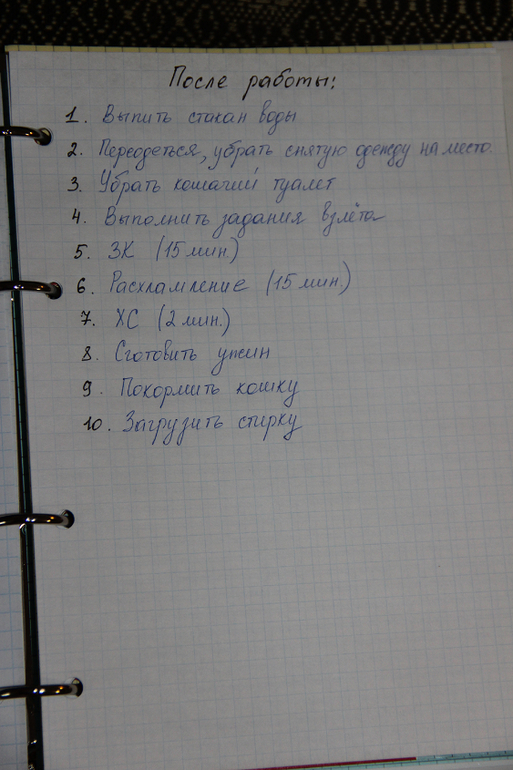 После работы:
1. Выпить стакан воды
2. Переодеться, убрать снятую одежду на место.
3. Убрать кошачий туалет
4. Выполнить задания взлёта
5. ЗК (15 мин.)
6. Расхламление (15 мин.)
7. ХС (2 мин.)
8. Сготовить ужин
9. Покормить кошку
10. Загрузить стирку